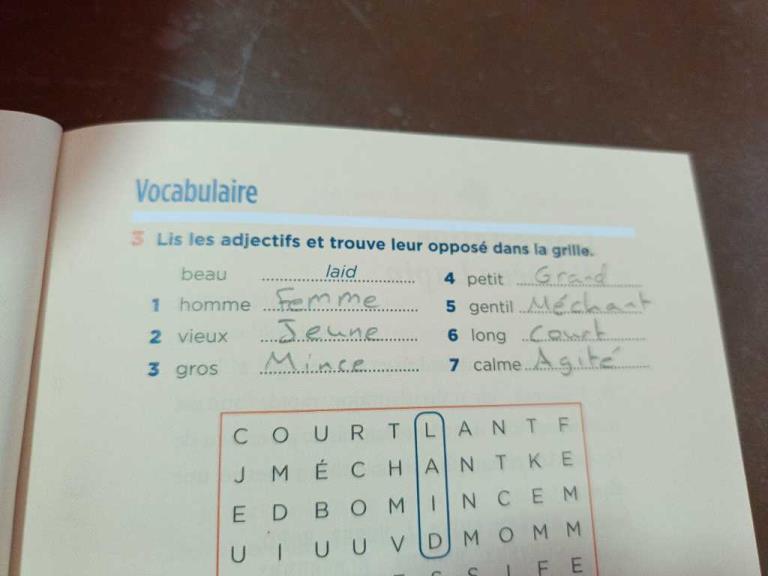 Vocabulaire
3 Lis les adjectifs et trouve leur opposé dans la grille.
beau laid
1 homme Femme
2 vieux Jeune
3 gros Mince
4 petit Grand
5 gentil Méchant
6 long Court
7 calme Agité
C O U R T L A N T F
J M É C H A N T K E
E D B O M I N C E M
U I U U V D M O M M
S I F E